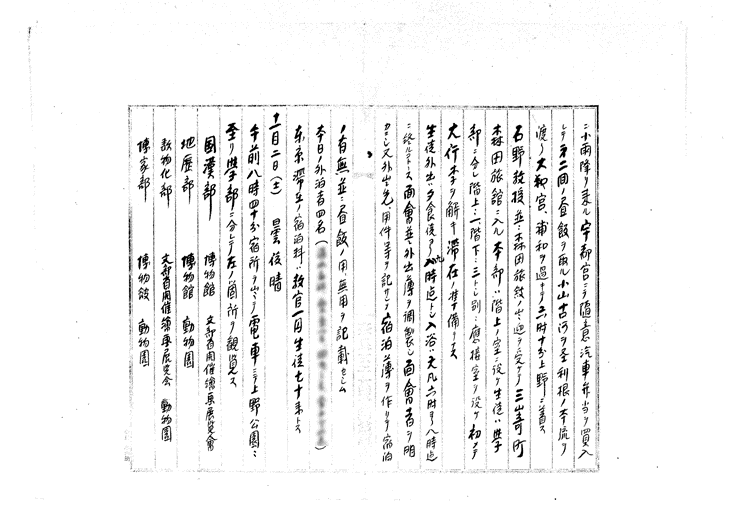 ニ小雨降リ来ル宇都宮ニテ随意汽車弁当ヲ買入
レテ第二回ノ昼飯ヲ取ル小山古河ヲ至利根ノ本流ヲ
渡リ大宮、浦和ヲ過キテ二時十分上野ニ着ス
石野教授並ニ森田旅館ノ出迎ヲ受ケテ三崎町
森田旅館ニ入ル本部ハ階上ノ一室ニ設ケ生徒ハ学
部ニ分シ階上ニ一階下ニ三トシ別ニ應接室ヲ設ケ初メテ
大行李ヲ解キ滞在ノ準備ヲナス
生徒外出ハ夕食後ヨリ九時迄トシ入浴ハ大凡六時ヨリ八時迄
ニ終ルトス面會並ニ外出簿ヲ調製シ面會者ヲ明
カニシ又外出先、用件等ヲ記セシメ宿泊簿ヲ作リテ宿泊
ノ有無並ニ昼飯ノ用、無用ヲ記載セシム
本日ノ外泊者四名(
東京滞在ノ宿泊料ハ教官一円生徒七十銭トス
十一月二日(土) 曇後晴
午前八時四十分宿所ヲ出テ電車ニテ上野公園ニ
至リ学部ニ分レテ左ノ箇所ヲ観覧ス
國漢部 博物館 文部省開催繪画展覧會
地歴部 博物館 動物園
数物化部 文部省開催繪画展覧会 動物園
博家部 博物館 動物園